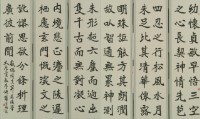 幼懷貞敏早悟三空
之心長契神情先苞
四忍之行松風水月
未足比其清華仙露
明珠詎能方其朗潤
故以智通無累神測
未形超六塵而迥出
隻千古而無對凝心
內境悲正法之陵遲
栖慮玄門慨深文之
訛謬思欲分條析理
廣彼前聞